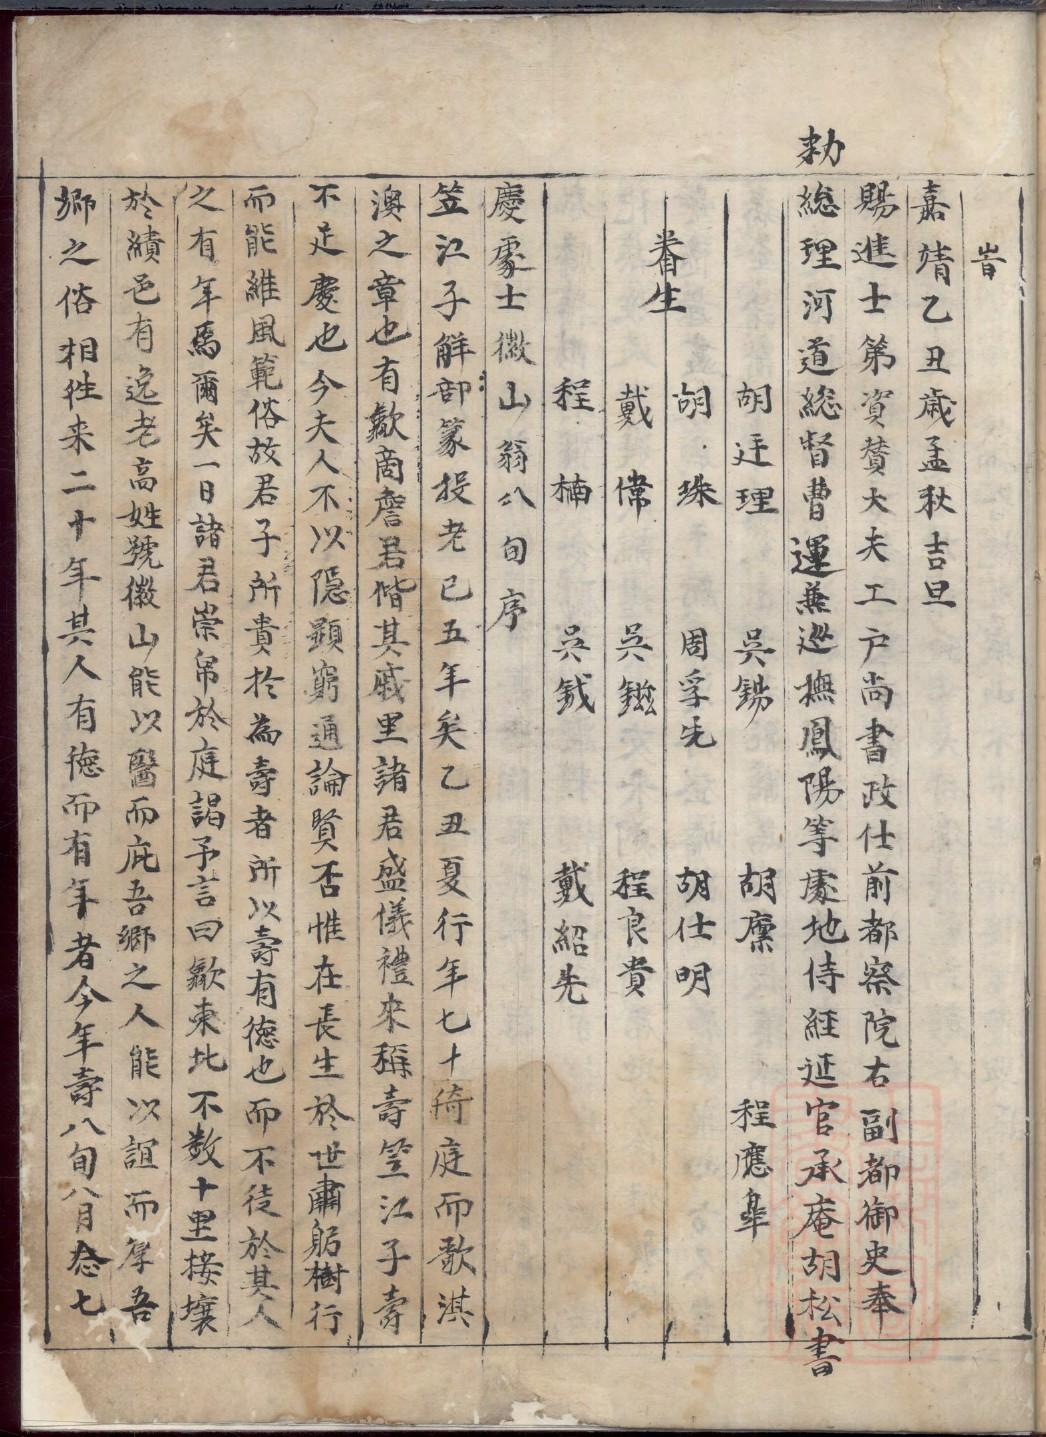 旹
嘉靖乙丑歲孟秋吉旦
賜進士第資贊大夫工户尚書政仕前都察院右副都御史奉
勑
総理河道総督曹運兼巡撫鳳陽等處地侍經延官承庵胡松書
胡迋理 吳錫 胡 程應
胡珠 周孚先 胡仕明
眷生
戴偉 吳鎡 程良貴
程楠 吳鉞 戴紹先
慶處士徽山翁八旬序
笠江子解部篆投老已五年矣乙丑夏行年七十倚庭而歌淇
澳之章也有歙商詹君偕其戚里諸君盛儀禮來稱壽笠江子壽
不足慶也今夫人不以隱顕窮通論賢否惟在長生於世肅躬樹行
而能維風範俗故君子所貴扵為壽者所以壽有德也而不徒於其人
之有年焉爾矣一日諸君崇帛於庭謁予言曰歙東北不数十里接壤
於績邑有逸老高姓號徽山能以醫而庇吾鄉之人能以誼而厚吾
鄉之俗相徃来二十年其人有德而有年者今年壽八旬八月念七